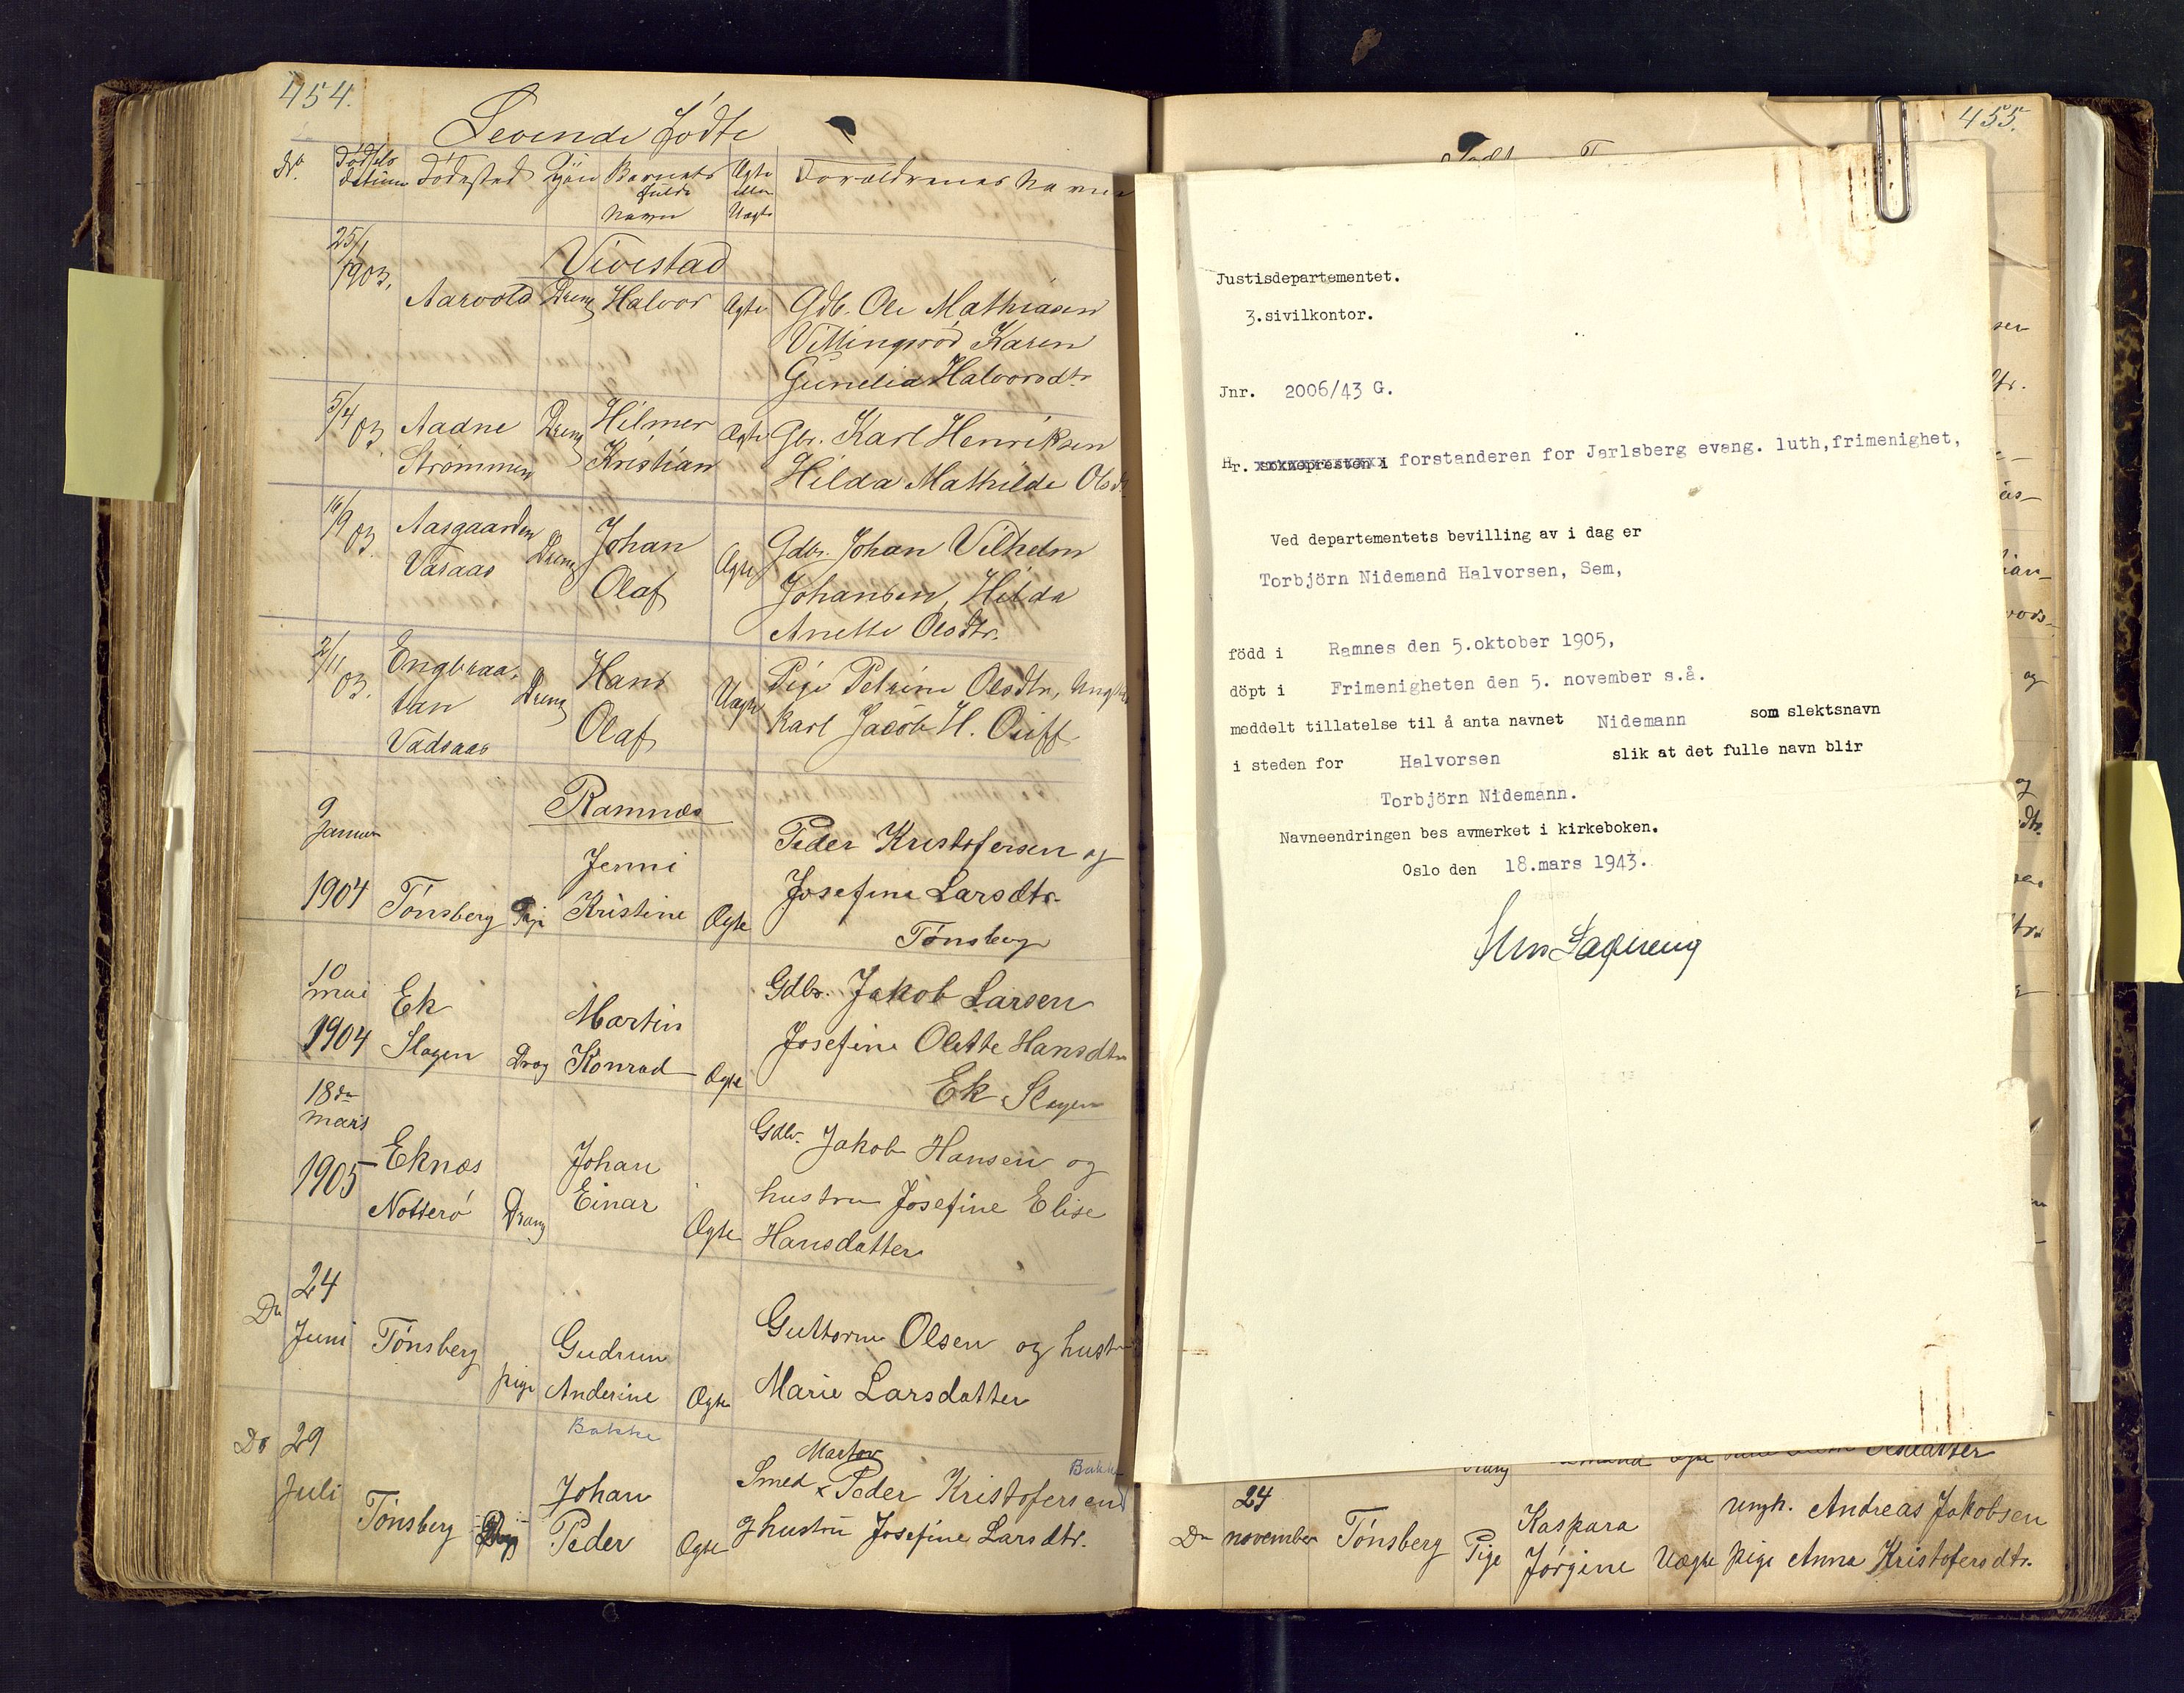 454.
Levende fødte
No.
Fødsels
datum
Fødested
Kjön
Barnets
fulde
Navn
Ægte
eller
Uægte
Forældrenes Navne
25/1
1903.
Vivestad
Aarvold Dreng Halvor Ægte Gdb. Ole Mathiasen
Vittingsrød Karen
Gunelia Halvorsdtr
5/4 03. Aadne Dreng Hilmer Ægte Gbr. Karl Henriksen
Strømmen Kristian Hilda Mathilde Olsdtr
16/9 03. Aasgaarden Dreng Johan Ægte Gdbr. Johan Vilhelm
Vasaas Olaf Johansen, Hilda
Anette Olsdtr.
2/11 03. Engbraa-
tan Dreng Hans Uægte Pige Petrine Olsdtr, Ungkar
Vadsaas Olaf Karl Jacob H.
Ramnes
9
Januar Jenni Peder Kristofersen og
1904 Tønsberg Pige Kristine Ægte Josefine Larsdtr.
Tønsberg
10
mai Ek Martin Gdbr. Jakob Larsen
1904 Slagen Drng Konrad Ægte Josefine Olette Hansdtr
Ek Slagen
18de
mars Eknes Johan Gdbr. Jakob Hansen og
1905 Notterø Dreng Einar Ægte hustru Josefine Elise
Hansdatter
24
Do Juni Tønsberg Gudrun Guttorm Olsen og hustru
pige Anderine Ægte Marie Larsdatter
Bakke
Do 29 Johan Smed Martin Peder Kristofersen Bakke
Juli Tønsberg Peder Ægte og hustru Josefine Larsdtr.
455.
Justisdepartementet.
3.sivilkontor.
Jnr. 2006/43 G.
Hr. soknepresten i forstanderen for Jarlsberg evang. luth,frimenighet,
Ved departementets bevilling av i dag er
Torbjörn Nidemand Halvorsen, Sem,
född i Ramnes den 5.oktober 1905,
döpt i Frimenigheten den 5. november s.å.
meddelt tillatelse til å anta navnet Nidemann som slektsnavn
i steden for Halvorsen slik at det fulle navn blir
Torbjörn Nidemann.
Navneendringen bes avmerket i kirkeboken.
Oslo den 18.mars 1943.
Olsdatter
24
Do november Tønsberg Pige Kaspara Ungk. Andreas Jakobsen
Jørgine Uægte pige Anna Kristofersdtr.